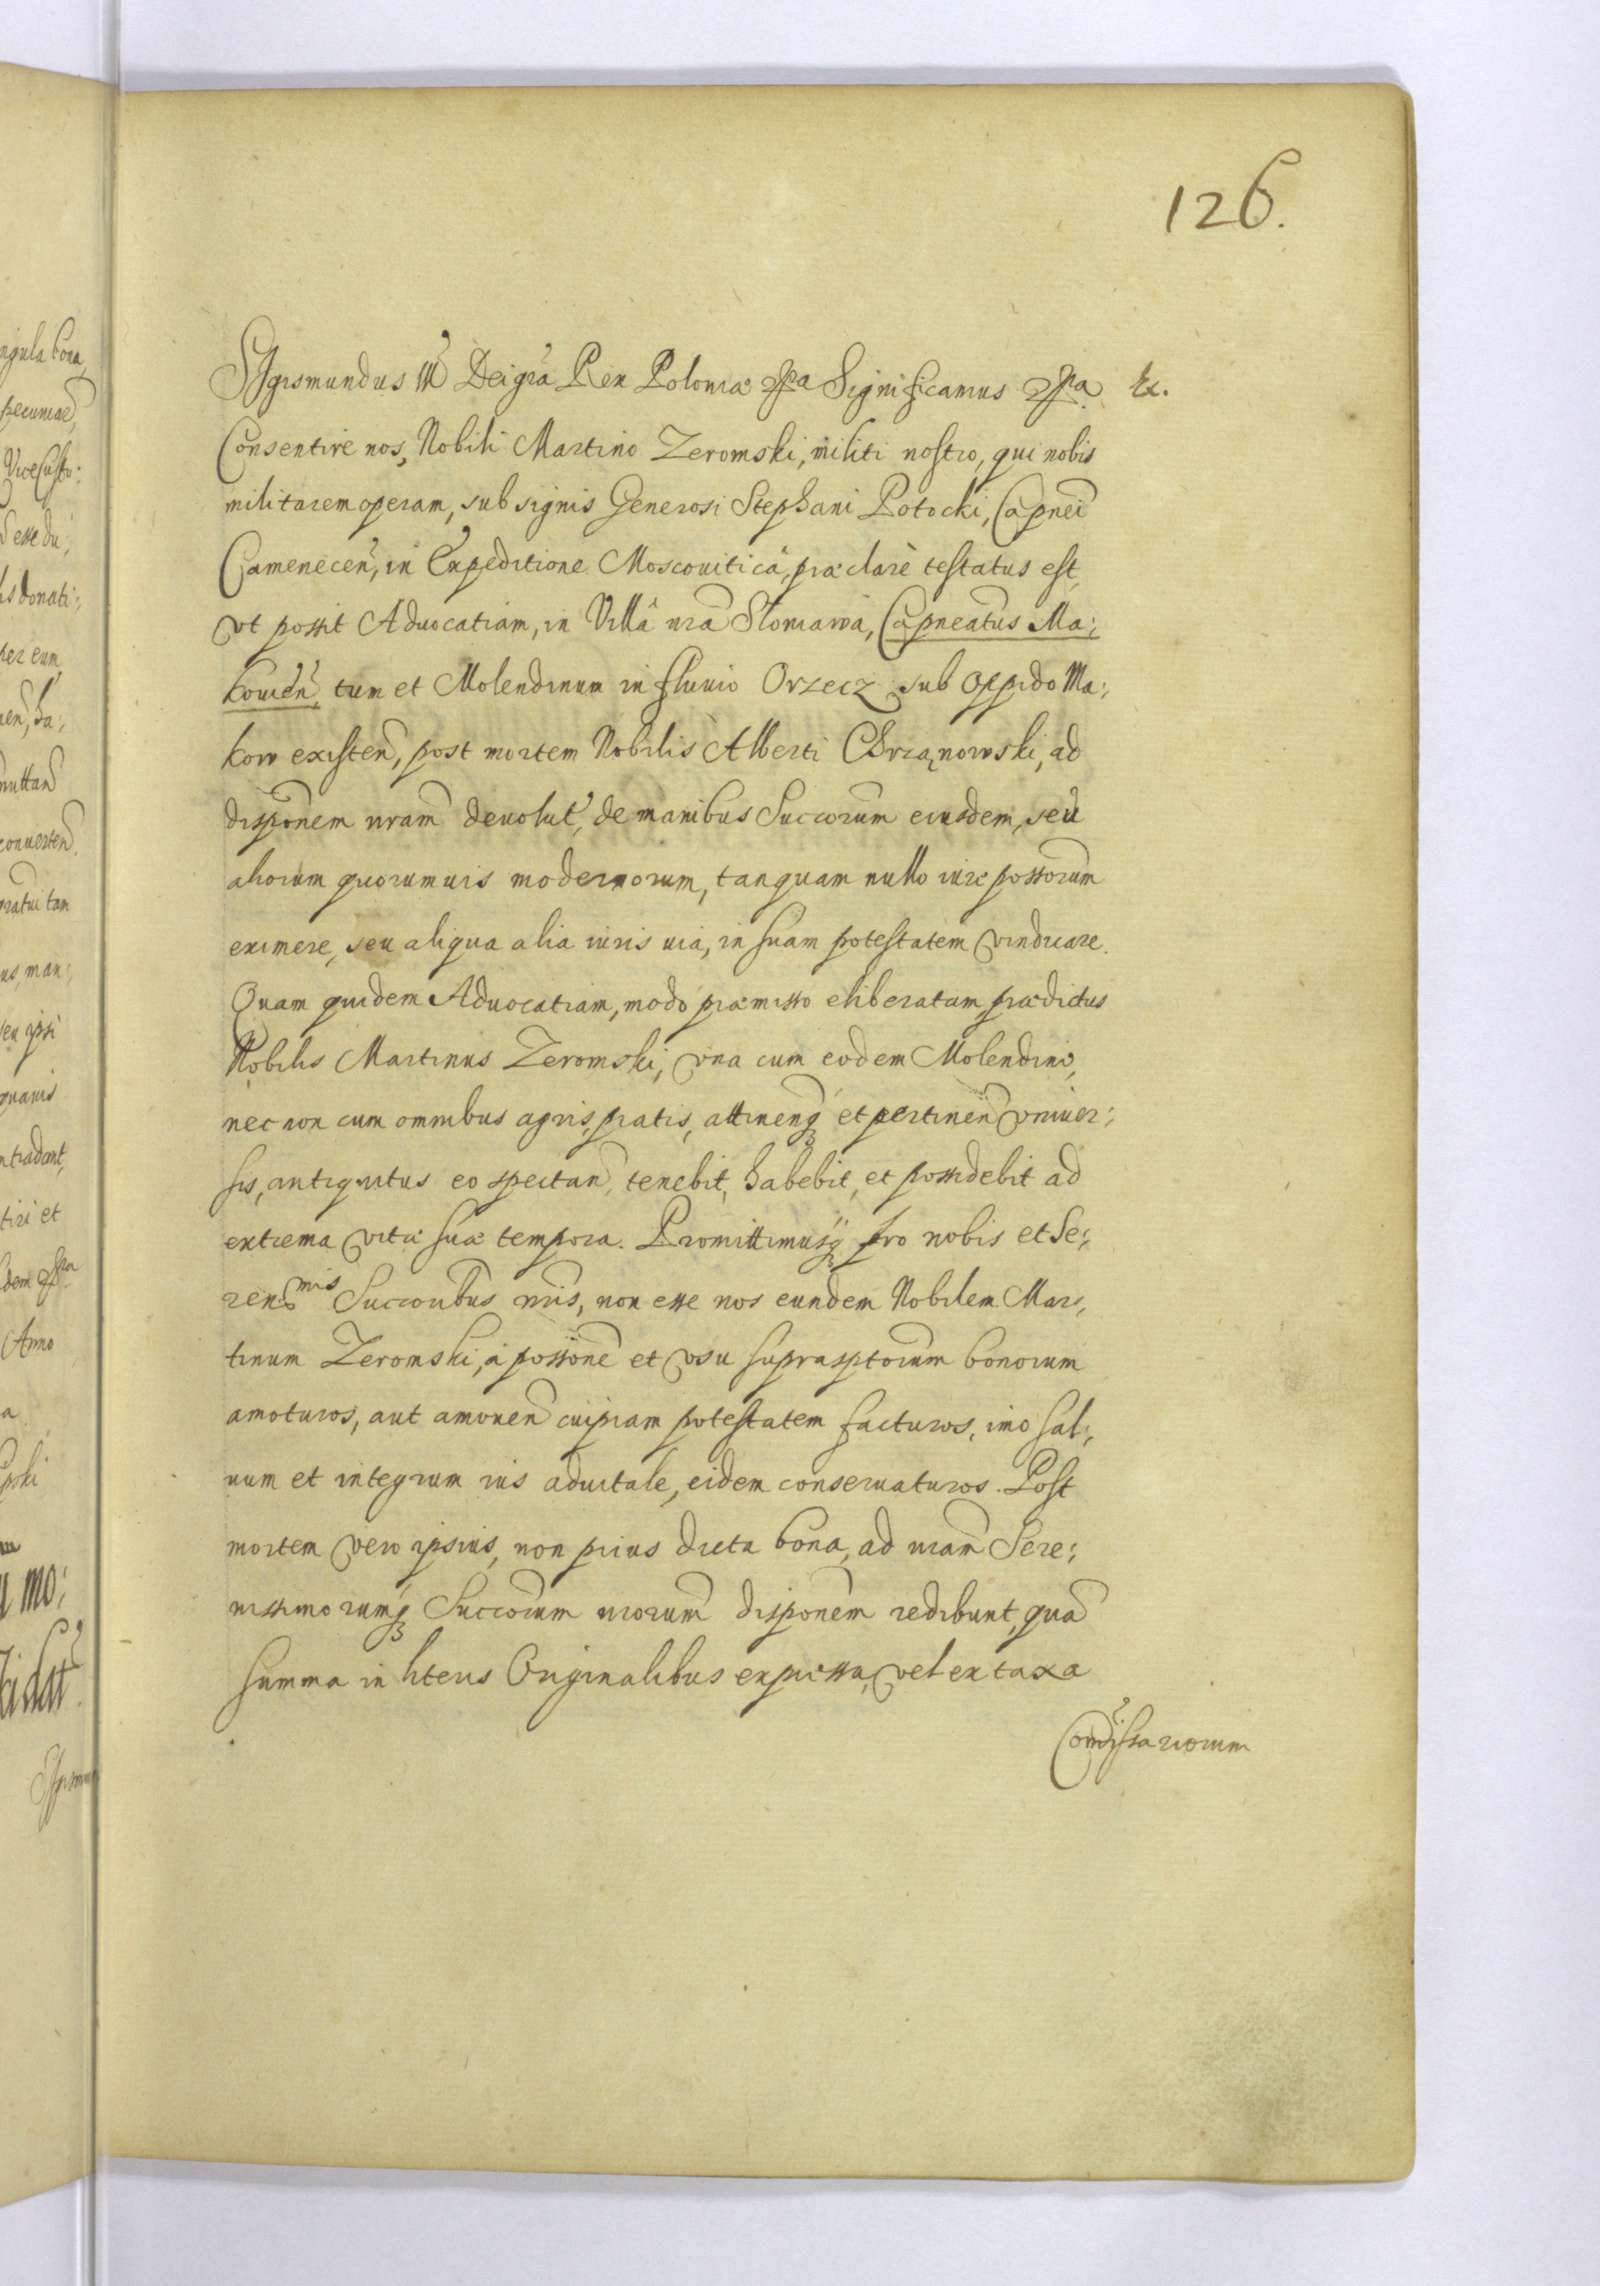 126.
Sigismundus III Dei gra Rex Poloniæ etca Significamus etca. Ex.
Consentire nos, Nobili Martino Zeromski, militi nostro, qui nobis
militarem operam, sub signis Generosi Stephani Potocki, Capnei
Camenecen, in Expeditione Moscouiticâ, præclarè testatus est,
vt possit Aduocatiam, in Villâ nrâ Sloniawa, Capneatus Ma:,
kouien, tum et Molendinum in fluuio Orzecz sub oppido Ma:,
kow existen, post mortem Nobilis Alberti Chrzanowski, ad
disponem nram deuolut, de manibus Succorum eiusdem, seu
aliorum quorumuis modernorum, tanquam nullo iure possorum
eximere, seu aliqua alia iuris uia, in suam potestatem vindicare.
Quam quidem Aduocatiam, modo præmisso eliberatam, prædictus
Nobilis Martinus Zeromski, vna cum eodem Molendino,
nec non cum omnibus agris, pratis, attinenq et pertinen vniuer:,
sis, antiquitus eo spectan, tenebit, habebit, et possidebit ad
extrema vitæ suæ tempora. Promittimusq pro nobis et Se:,
renmis Succoribus nris, non esse nos eundem Nobilem Mar:,
tinum Zeromski, à possone et vsu suprasptorum bonorum
amoturos, aut amouen cuipiam potestatem facturos, imo sal:,
uum et integrum ius aduitale, eidem conseruaturos. Post
mortem vero ipsius, non prius dicta bona, ad nram Sere:,
nissimorumq Succorum nrorum disponem redibunt, qua
summa in literis Originalibus expressa, vel ex taxa
Commissariorum
ngula bona,
pecuniæ,
ViceCusto:
esse du:,
is donati:,
per eum,
en, ha:,
conuerten,
us, man:,
seu ipsi
quauis
tiri et
Anno
mo: